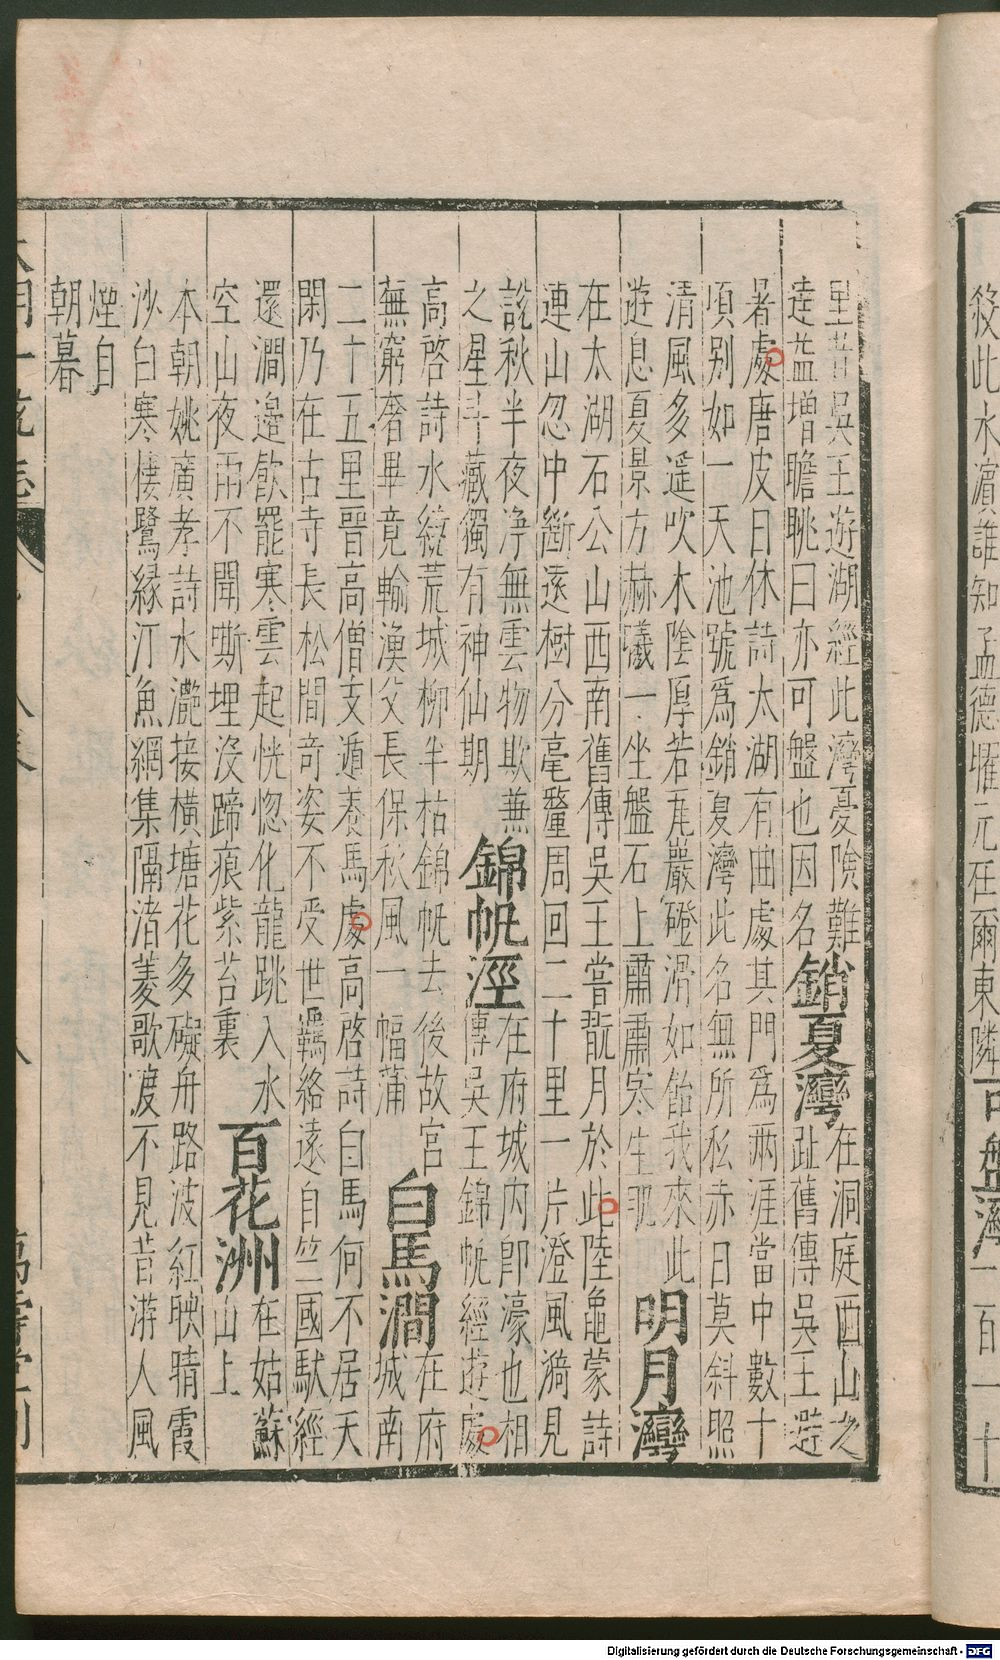 殺此水濱誰知孟德元在爾東隣可盤灣一百一十
里昔吳王遊湖經此灣憂險難銷夏灣在洞庭西山之
達益增瞻眺曰亦可盤也因名趾舊傳吳王避
暑處唐皮日休詩太湖有曲處其門爲兩涯當中數十
頃别如一天池號爲銷夏灣此名無所私赤日莫斜照
清風多遥吹水陰厚若瓦巖磴滑如飴我來此明月灣
遊息夏景方赫曦一坐盤石上肅肅寒生肌
在太湖石公山西南舊傳吳王嘗翫月於此陸龜蒙詩
連山忽中斷遠樹分毫釐周回二十里一片澄風漪見
說秋半夜浄無雲物欺兼錦帆涇在府城内卽濠也相
之星斗藏獨有神仙期傳吳王錦帆經遊處
高啓詩水繞荒城柳半枯錦帆去後故宮白馬澗在府
無窮奢畢竟輸漁父長保秋風一幅蒲城南
二十五里晉高僧支遁養馬處高啓詩白馬何不居天
閑乃在古寺長松間竒姿不受世羈絡遠自竺國馱經
還澗邉飲罷寒雲起恍惚化龍跳入水百花洲在姑蘇
空山夜雨不聞嘶埋没蹄痕紫苔裏山上
本朝姚廣孝詩水灔接橫塘花多礙舟路波紅映晴霞
沙白寒棲鷺縁汀魚網集隔渚菱歌渡不見昔游人風
煙自
朝暮
大明一統志 八卷 八 萬壽堂刊
Digitalisierung gefördert durch die Deutsche Forschungsgemeinschaft - DFG